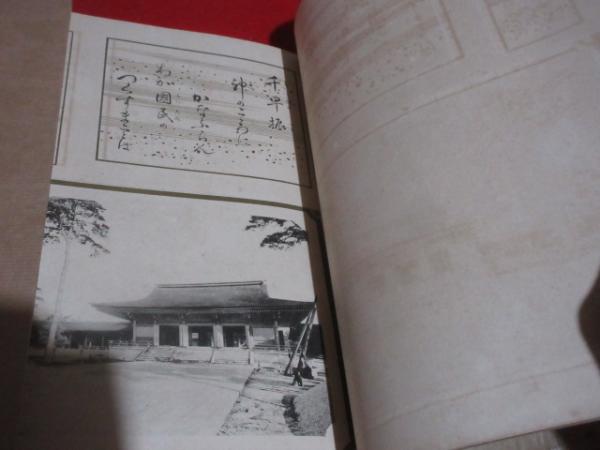 千早振
神のこゝろに
かなふらむ
わが國民の
つくすまことは